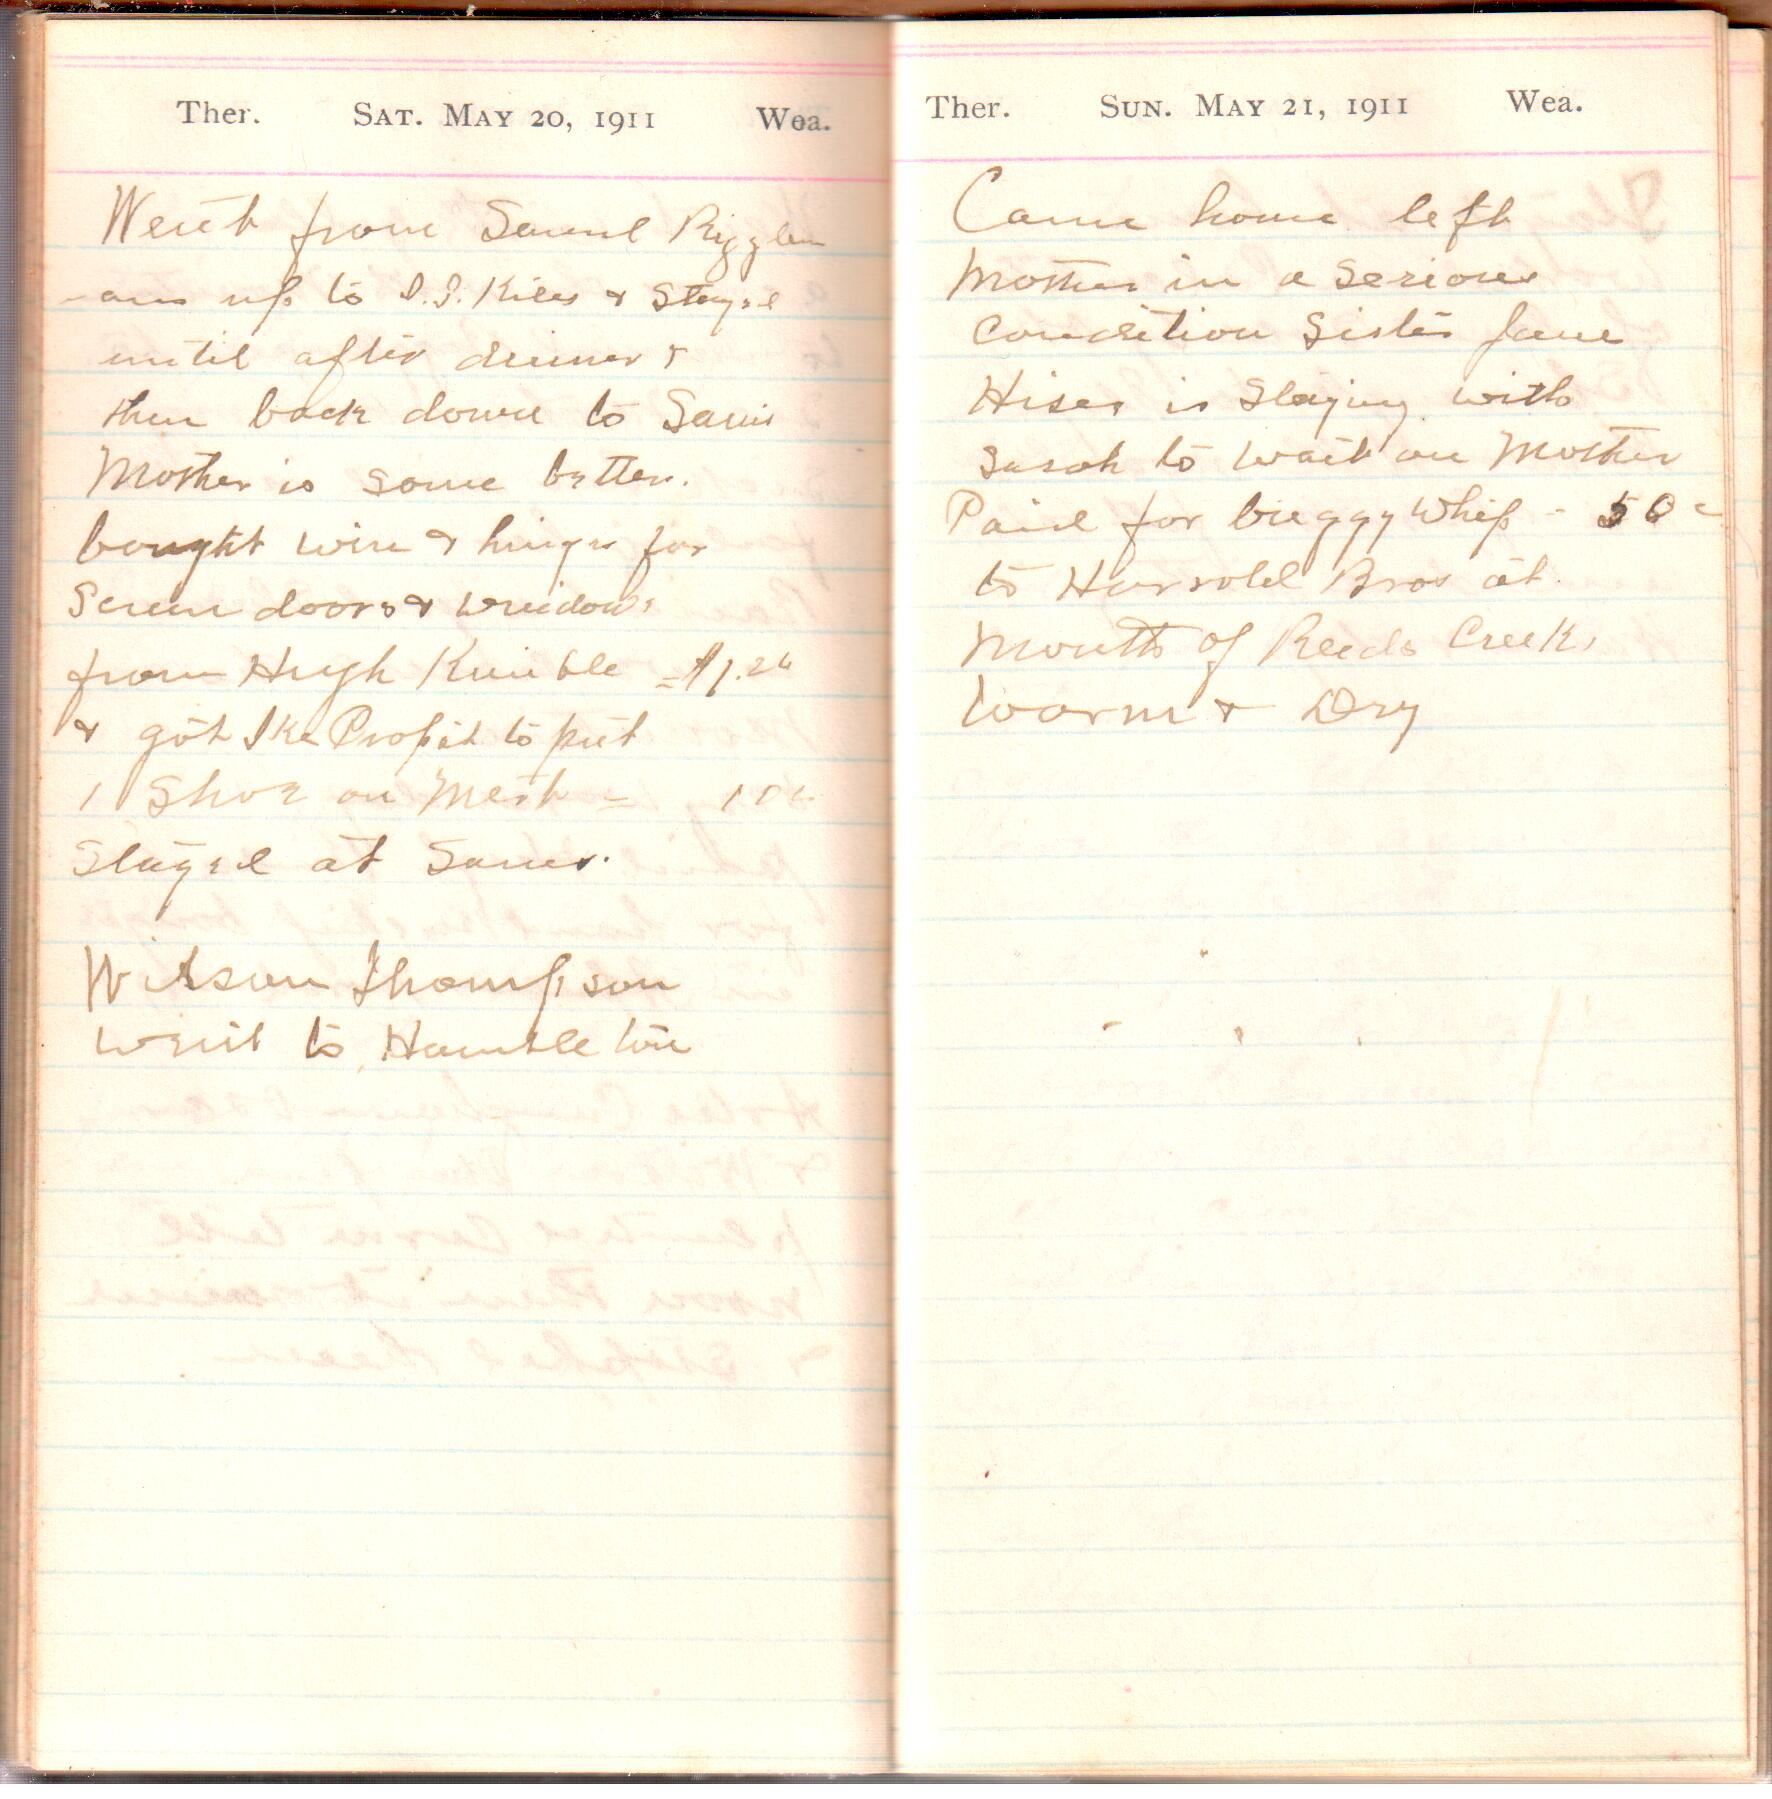 Ther. SAT. MAY 20, 1911 Wea.
Went from Samuel Rigglem
-ans up to I.S. Kiles & Stayed
until after dinner &
then back down to Sams
Mother is some better.
bought wire & hinges for
Screen doors & windows
from Hugh Kimble = $1.26
& got Ike Profit to put
1 Shoe on Mert = 10c.
Stayed at Sams.
Wilson Thompson
went to Hambleton
Ther. SUN. MAY 21, 1911 Wea.
Came home left
Mother in a Serious
Condition Sister Jane
Hiser is Staying with
Sarah to wait on Mother
Paid for buggy whip - 50c
to Harrold Bros at
Mouth of Reeds Creek,
Warm & Dry